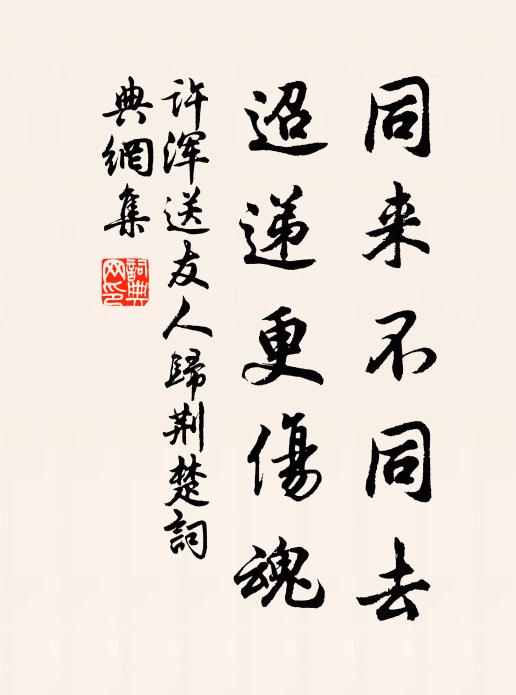 同来不同去
迢递更傷魂
许浑送友人歸荆楚詞
典網集
詞典
网印